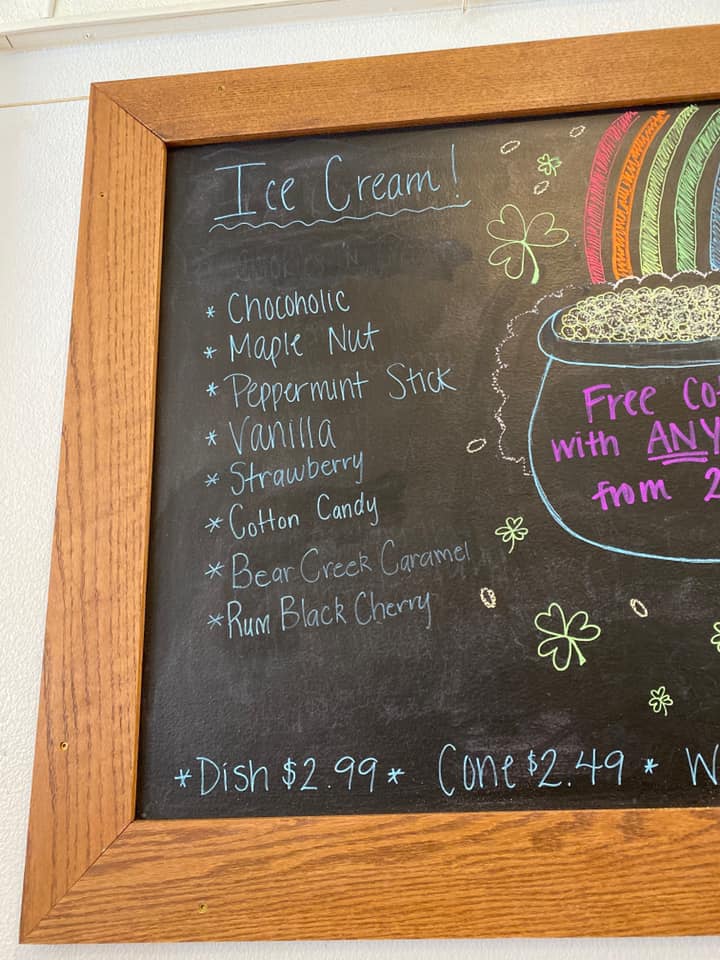 Ice Cream!
* Chocoholic
* Maple Nut
* Peppermint Stick
* Vanilla
* Strawberry
* Cotton Candy
* Bear Creek Caramel
* Rum Black Cherry
Free Co
with ANY
from 2
*Dish $2.99* Cone $2.49 * W